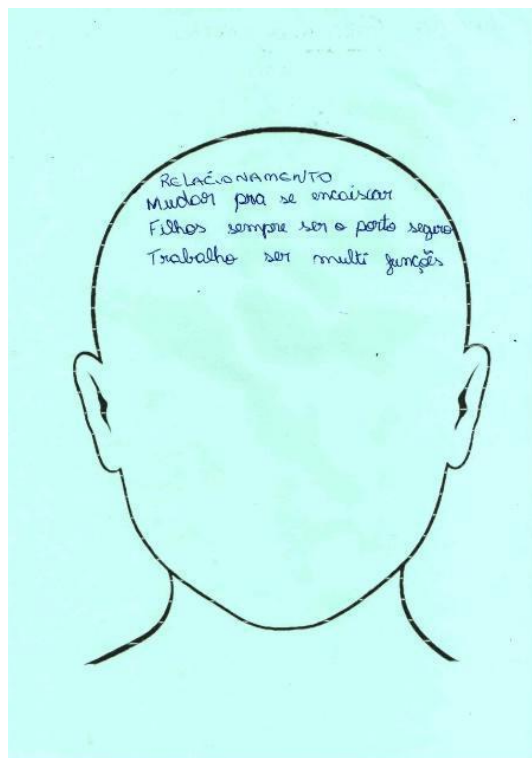 RELACIONAMENTO
Mudar pra se encaixar
Filhos sempre ser o porto seguro
Trabalho ser multi funções